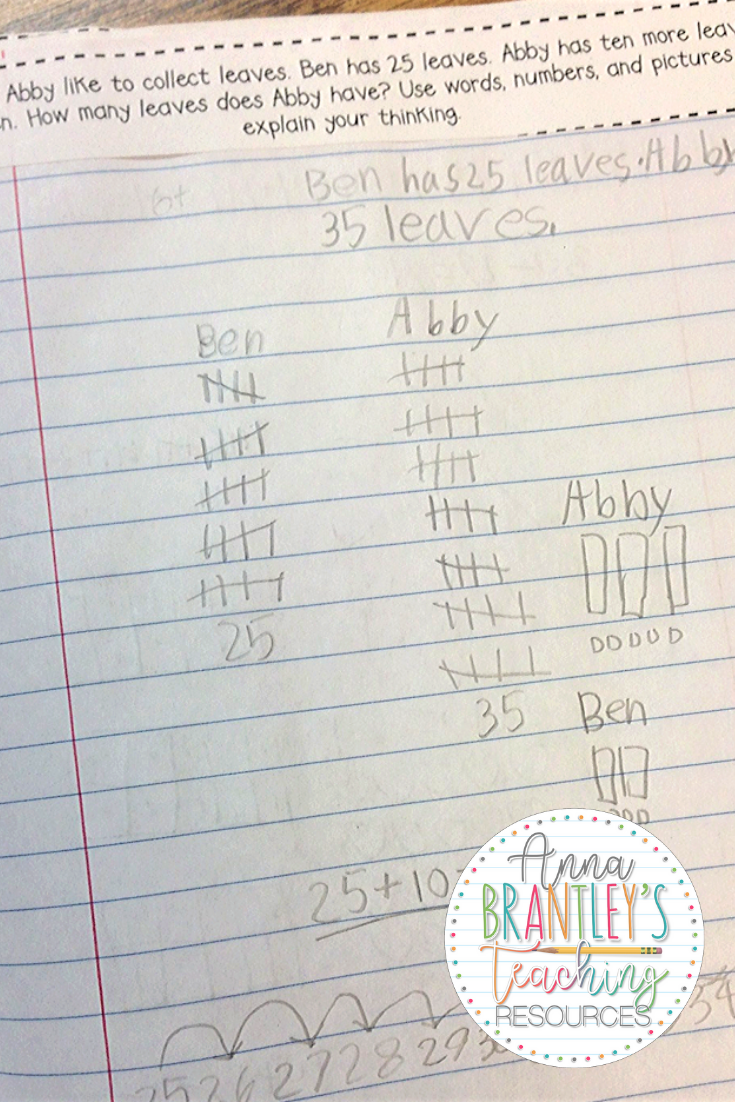 Abby like to collect leaves. Ben has 25 leaves. Abby has ten more leav
n. How many leaves does Abby have? Use words, numbers, and pictures
explain your thinking.
Ben has 25 leaves. Abby
35 leaves.
Ben
25
Abby
35
Abby
Ben
25+10
25 26 27 28 29 3
34
Anna
BRANTLEY'S
Teaching
RESOURCES